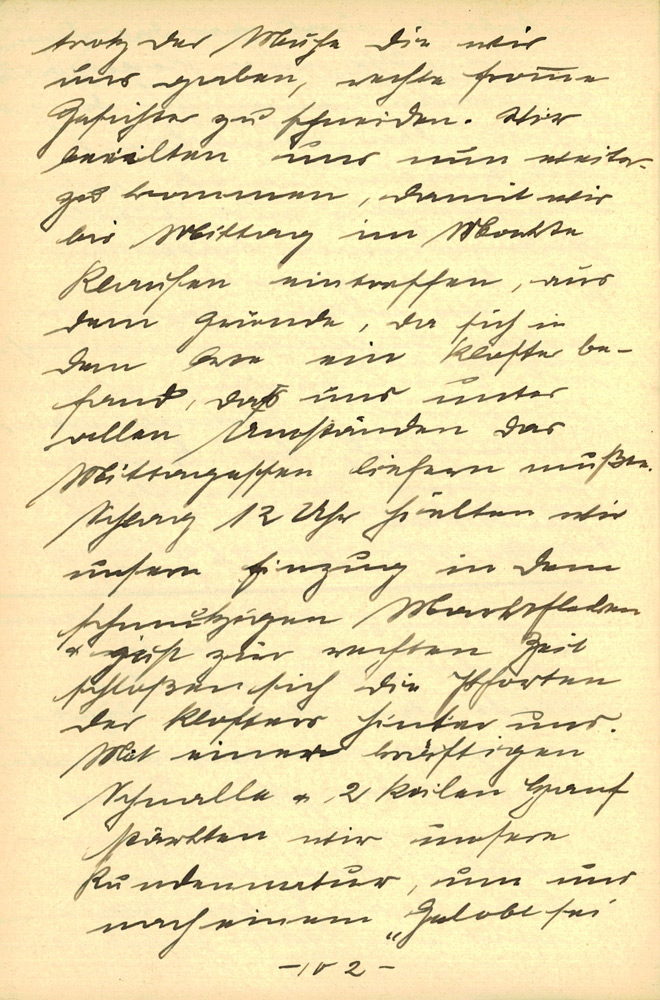 trotz der Mühe die wir
uns gaben, rechte fromme
Gesichter zu schneiden. Wir
beeilten uns nun weiter-
zu kommen, damit wir
bis Mittag im Markte
Klausen eintreffen, aus
dem Grunde, da sich in
dem Orte ein Kloster be-
fand, daß uns unter
allen Umständen das
Mittagessen liefern mußte.
Schlag 12 Uhr hielten wir
unsern Einzug in dem
schmutzigen Marktflecken
& just zur rechten Zeit
schloßen sich die Pforten
der Klosters hinter uns.
Mit einer kräftigen
Schnalle & 2 Keilen Hanf
stärkten wir unsere
Kundennatur, um uns
nach einem „Gelobt sei
- 102 -